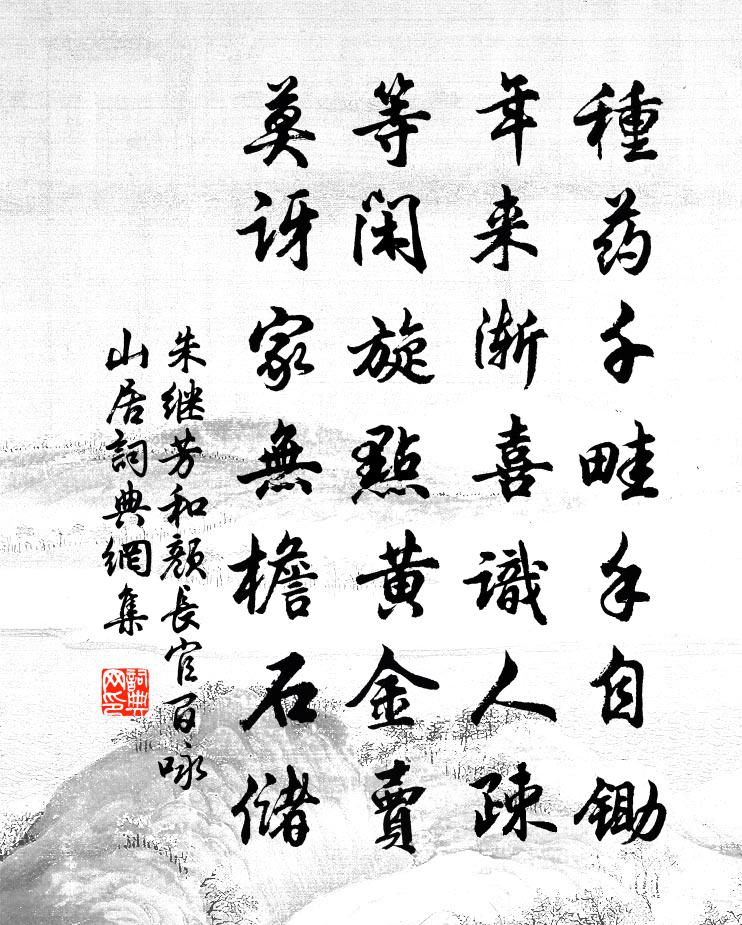 種药千畦手自鋤
年来渐喜識人疎
等闲旋點黄金賣
莫讶家無檐石儲
朱继芳和颜長官百咏
山居詞典網集
詞典
网印